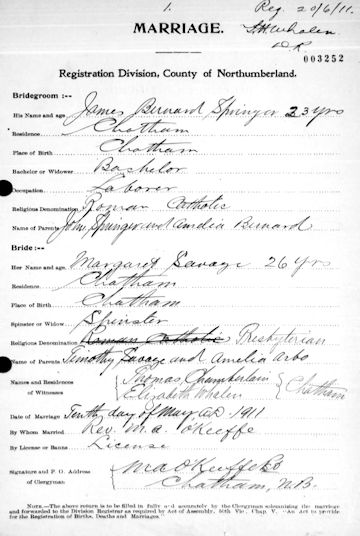 1.
Reg. 20/6/11.
MARRIAGE.
D.R.
003252
Registration Division, County of Northumberland.
Bridegroom :--
His Name and age James Bernard Springer 23 yrs
Residence Chatham
Place of Birth Chatham
Bachelor or Widower Bachelor
Occupation Laborer
Religious Denomination Roman Catholic
Name of Parents John Springer and Amelia Bernard
Bride :--
Her Name and age Margaret Savage 26 yrs
Residence Chatham
Place of Birth Chatham
Spinster or Widow Spinster
Religious Denomination Roman Catholic Presbyterian
Name of Parents Timothy Savage and Amelia Arbo
Names and Residences of Witnesses
Thomas Chamberlain
Elizabeth Whalen
Chatham
Date of Marriage Tenth day of May A.D. 1911
By Whom Married Rev. M.A. O'Keeffe
By License or Banns License
Signature and P. O. Address of Clergyman
M A O'Keeffe
Chatham, N.B.
NOTE.--The above return is to be filled in fully and accurately by the Clergyman solemnizing the marriage
and forwarded to the Division Registrar as required by Act of Assembly, 50th Vic., Chap. V. "An Act to provide
for the Registration of Births, Deaths and Marriages."